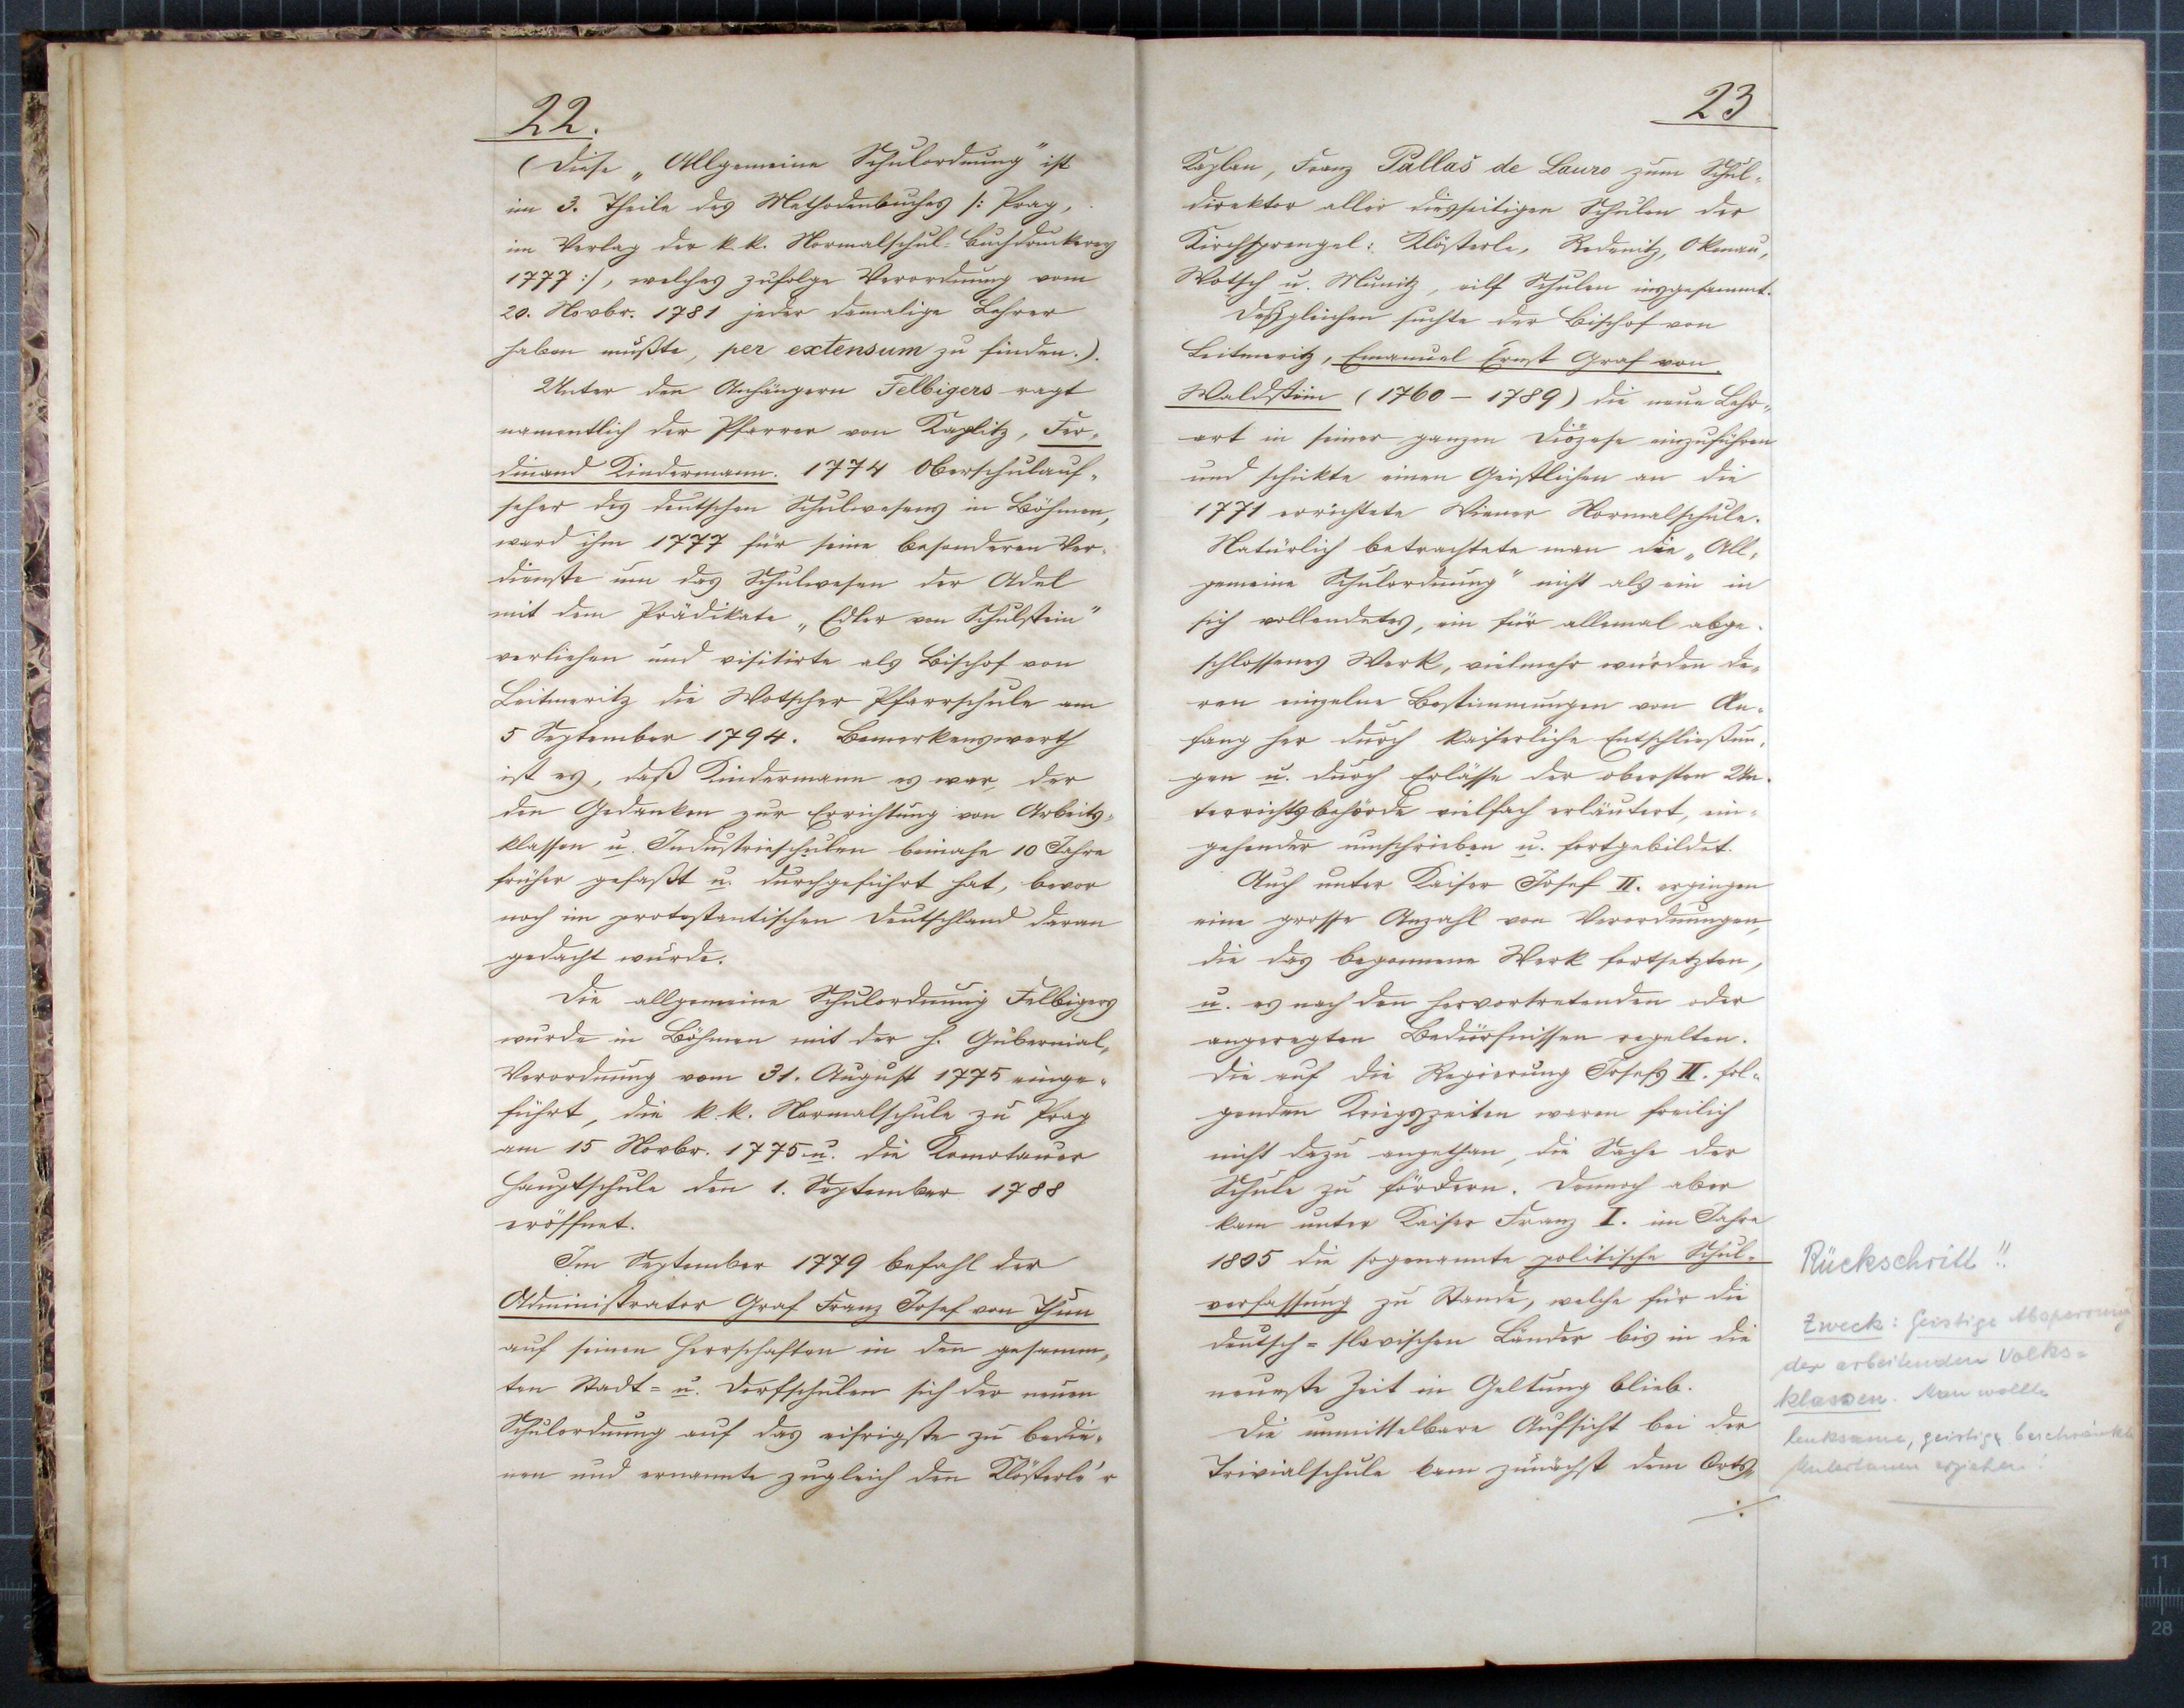 22.
(Diese „Allgemeine Schulordnung" ist
im 3. Theile des Methodenbuches /: Prag,
im Verlag der k. k. Normalschul-Buchdruckerey
1777 :/, welches zufolge Verordnung vom
20. Novbr. 1781 jeder damalige Lehrer
haben mußte, per extensum zu finden.).
Unter den Anhängern Felbigers ragt
namentlich der Pfarrer von Kaplitz, Fer-
dinand Kindermann. 1774 Oberschulauf-
seher des deutschen Schulwesens in Böhmen,
ward ihm 1777 für seine besonderen Ver-
dienste um das Schulwesen der Adel
mit dem Prädikate „Edler von Schulstein"
verliehen und visitirte als Bischof von
Leitmeritz die Wotscher Pfarrschule am
5 September 1794. Bemerkenswerth
ist es, daß Kindermann es war, der
den Gedanken zur Errichtung von Arbeits-
klassen u. Industrieschulen beinahe 10 Jahre
früher gefaßt u. durchgeführt hat, bevor
noch im protestantischen Deutschland daran
gedacht wurde.
Die allgemeine Schulordnung Felbigers
wurde in Böhmen mit der h. Gubernial-
Verordnung vom 31. August 1775 einge-
führt, die k. k. Normalschule zu Prag
am 15 Novbr. 1775 u. die Komotauer
Hauptschule den 1. September 1788
eröffnet.
Im September 1779 befahl der
Administrator Graf Franz Josef von Thun
auf seinen Herrschaften in den gesamm-
ten Stadt- u. Dorfschulen sich der neuen
Schulordnung auf das eifrigste zu bedie-
nen und ernannte zugleich den Klösterle'r
23
Kaplan, Franz Pallas de Lauro zum Schul-
direktor aller diesseitigen Schulen der
Kirchsprengel: Klösterle, Redenitz, Okenau,
Wotsch u. Münitz, eilf Schulen insgesammt.
Deßgleichen suchte der Bischof von
Leitmeritz, Emanuel Ernst Graf von
Waldstein (1760 - 1789) die neue Lehr-
art in seiner ganzen Diözese einzuführen
und schickte einen Geistlichen an die
1771 errichtete Wiener Normalschule.
Natürlich betrachtete man die „All-
gemeine Schulordnung" nicht als ein in
sich vollendetes, ein für allemal abge-
schlossenes Werk, vielmehr wurden de-
ren einzelne Bestimmungen von An-
fang her durch kaiserliche Entschließun-
gen u. durch Erlässe der obersten Un-
terrichtsbehörde vielfach erläutert, ein-
gehender umschrieben u. fortgebildet.
Auch unter Kaiser Josef II. ergingen
eine grosse Anzahl von Verordnungen,
die das begonnene Werk fortsetzten,
u. es nach den hervortretenden oder
angeregten Bedürfnissen regelten.
Die auf die Regierung Josefs II. fol-
genden Kriegszeiten waren freilich
nicht dazu angethan, die Sache der
Schule zu fördern. Dennoch aber
kam unter Kaiser Franz I. im Jahre
1805 die sogenannte politische Schul-
verfassung zu Stande, welche für die
deutsch-slavischen Länder bis in die
neueste Zeit in Geltung blieb.
Die unmittelbare Aufsicht bei der
Trivialschule kam zunächst dem Orts-
./.
Rückschritt!!
Zweck: Geistige Absperrung
der arbeitenden Volks-
klassen. Man wollte
lenksame, geistig beschränkte
Untertanen erziehen!